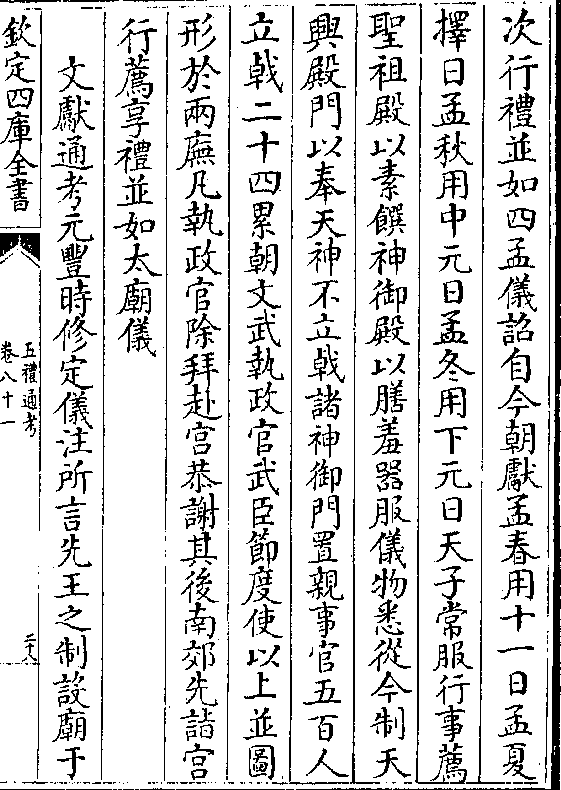 次行禮並如四孟儀詔自今朝獻孟春用十一日孟夏
擇日孟秋用中元日孟冬用下元日天子常服行事薦
聖祖殿以素饌神御殿以膳羞器服儀物悉從今制天
興殿門以奉天神不立㦸諸神御門置親事官五百人
立㦸二十四累朝文武執政官武臣節度使以上並圖
形於兩廡凡執政官除拜赴宫恭謝其後南郊先詣宫
行薦享禮並如太廟儀
文獻通考元豐時修定儀注所言先王之制設廟于
欽定四庫全書
五禮通考
卷八十一
二十八